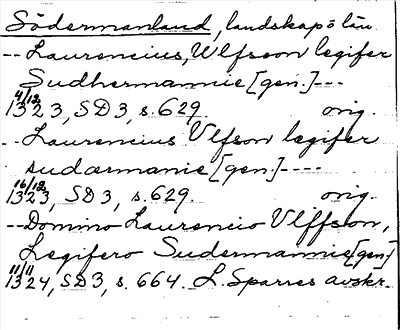 Södermanland, landskap o län
-- Laurencius, Wlfsson legifer
Sudhermannie [gen.] ---
4/12 1323, SD 3, s. 629. orig.
-- Laurencius Vlfson legifer
sudærmanie [gen.] ----
16/12 1323, SD 3, s. 629. orig.
-- Domino Laurencio Vlffson,
Legifero Sudermannie [gen]
11/11 1324, SD 3, s. 664. L. Sparres avskr.